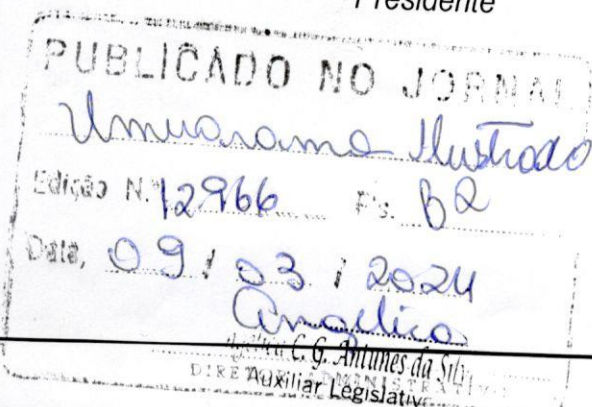 Presidente
PUBLICADO NO JORNAL
Umuarama Ilustrado
Edição N.º 12966 Fls. B2
Data, 09 / 03 / 2024
Angélica
C. G. Antunes da Silva
DIRETOR ADMINISTRATIVO
Auxiliar Legislativo